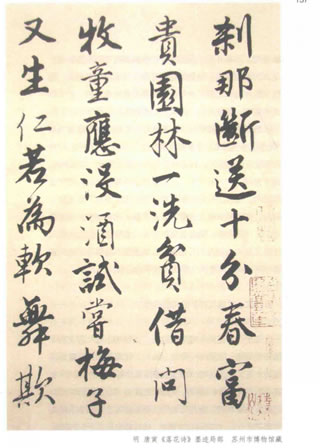 刹那斷送十分春富
貴園林一洗貧借问
牧童應没酒試嘗梅子
又生仁若為軟舞欺
明 唐寅《落花诗》墨迹局部 苏州市博物馆藏